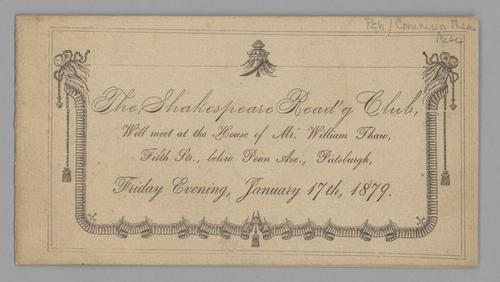 Pgh / Common Thea
Misc
The Shakespeare Read'g Club,
Will meet at the House of Mr. William Thaw,
Fifth Str., below Penn Ave., Pittsburgh,
Friday Evening, January 17th, 1879.